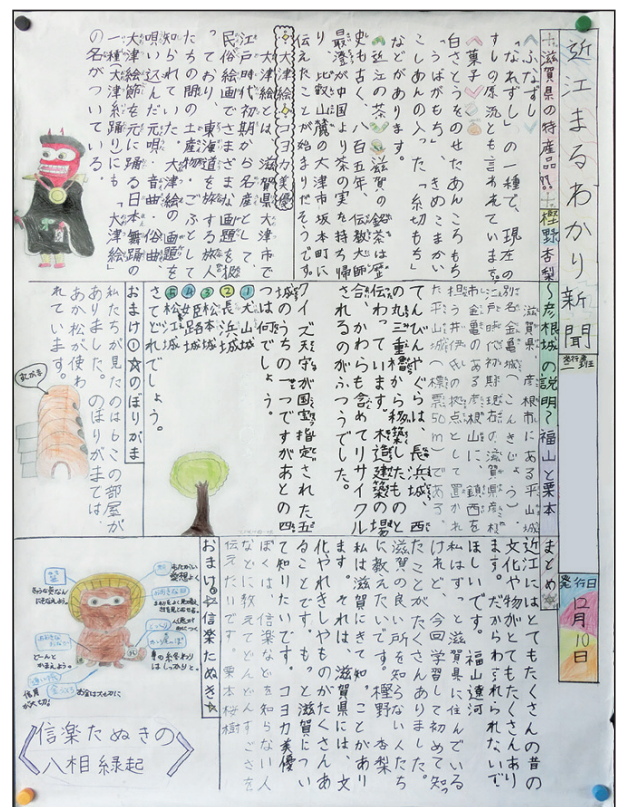 近江まるわかり新聞
発行者
班
発行日
12月10日
滋賀県の特産品!!
樫野杏梨
ふなずし
「なれずし」の一種で、現在の
すしの原流とも言われています。
菓子
白さとうをのせたあんころもち
「うばがもち」、きめこまかい
こしあんの入った「糸切もち」
などがあります。
近江の茶
滋賀の銘茶は歴
史も古く、八百五年、伝教大師
最澄が中国より茶の実を持ち帰
り、比叡山麓の大津市坂本町に
伝えたことが始まりだそうです。
大津絵
コヨカ美優
大津絵とは、滋賀県大津市で
江戸時代初期から名産としてき
民俗絵画でさまざまな画題を扱
っており、東海道を旅する旅人
たちの間の土産物・ごふとして
知られていた。大津絵の画題を
唄い込んだ元唄・音曲・俗曲、
大津絵節、元に踊る日本舞踊の
一種大津絵踊りにも「大津絵」
の名がついている。
〜彦根城の説明〜
福山と栗本
滋賀県、彦根市にある平山城
別名金亀城(こんきじょう)
江戸時代初期、現在の滋賀県彦根
市金亀のある彦根山に、鎮西を
担う井伊氏の拠点として置かれ
た平山城(標票50m)である。
てんびんやぐらは、長浜城、西
の丸三重櫓から移築したものと
伝わっています。木造建築の場
合、かわらも含めてリサイクル
されるのがふつうでした。
クイズ天守が国宝指定された五
城のうちの一つですがあとの四
つは何でしょう。
①犬山城
②長浜城
③松本城
④姫路城
⑤松江城
さてどれでしょう。
おまけ①☆のぼりがま
私たちが見たのは6この部屋が
ありました。のぼりがまでは
あか松が使わ
れています。
まとめ☆
近江にはとてもたくさんの昔の
文化や物がとてもたくさんあり
ます。だからわすれられないで
ほしいです。福山蓮河
私はずっと滋賀県に住んでいる
けれど、今回学習して初めて知っ
たことがたくさんありました。
滋賀の良い所を知らない人たち
に教えたいです。樫野杏梨
私は滋賀にきて、知ことがあり
ます。それは、滋賀県には、文
化やれきしやものがたくさんあ
って知りたいです。もっと滋賀につい
て知りたいです。コヨカ美優
ぼくは、信楽などを知らない人
などに教えてどんどんすごさを
伝えたいです。栗本桜樹
おまけ②☆信楽たぬき☆
どーんと
かまえよう。
お金は大切に
《信楽たぬきの
八相縁起》